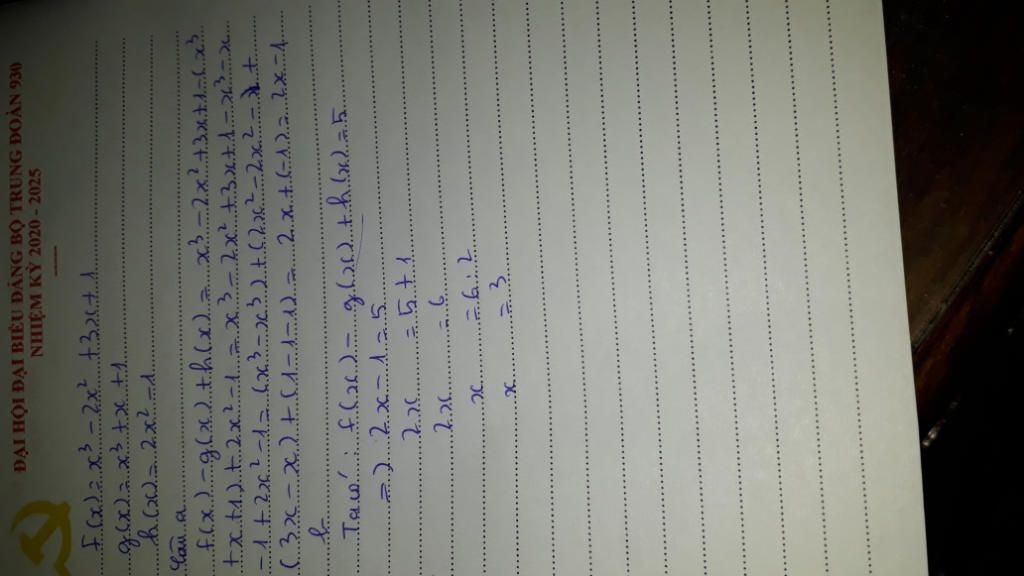 ĐẠI HỘI ĐẠI BIỂU ĐẢNG BỘ TRUNG ĐOÀN 930
NHIỆM KỲ 2020 - 2025
f(x) = x³ - 2x² + 3x + 1
g(x) = x³ + x + 1
h(x) = 2x² - 1
Câu a
f(x) - g(x) + h(x) = x³ - 2x² + 3x + 1 - (x³
+ x + 1) + 2x² - 1 = x³ - 2x² + 3x + 1 - x³ - x
- 1 + 2x² - 1 = (x³ - x³) + (2x² - 2x² - +
(3x - x) + (1 - 1 - 1) = 2x + (-1) = 2x - 1
b
Ta có : f(x) - g(x) + h(x) = 5
=) 2x - 1 = 5
2x = 5 + 1
2x = 6
x = 6 : 2
x = 3